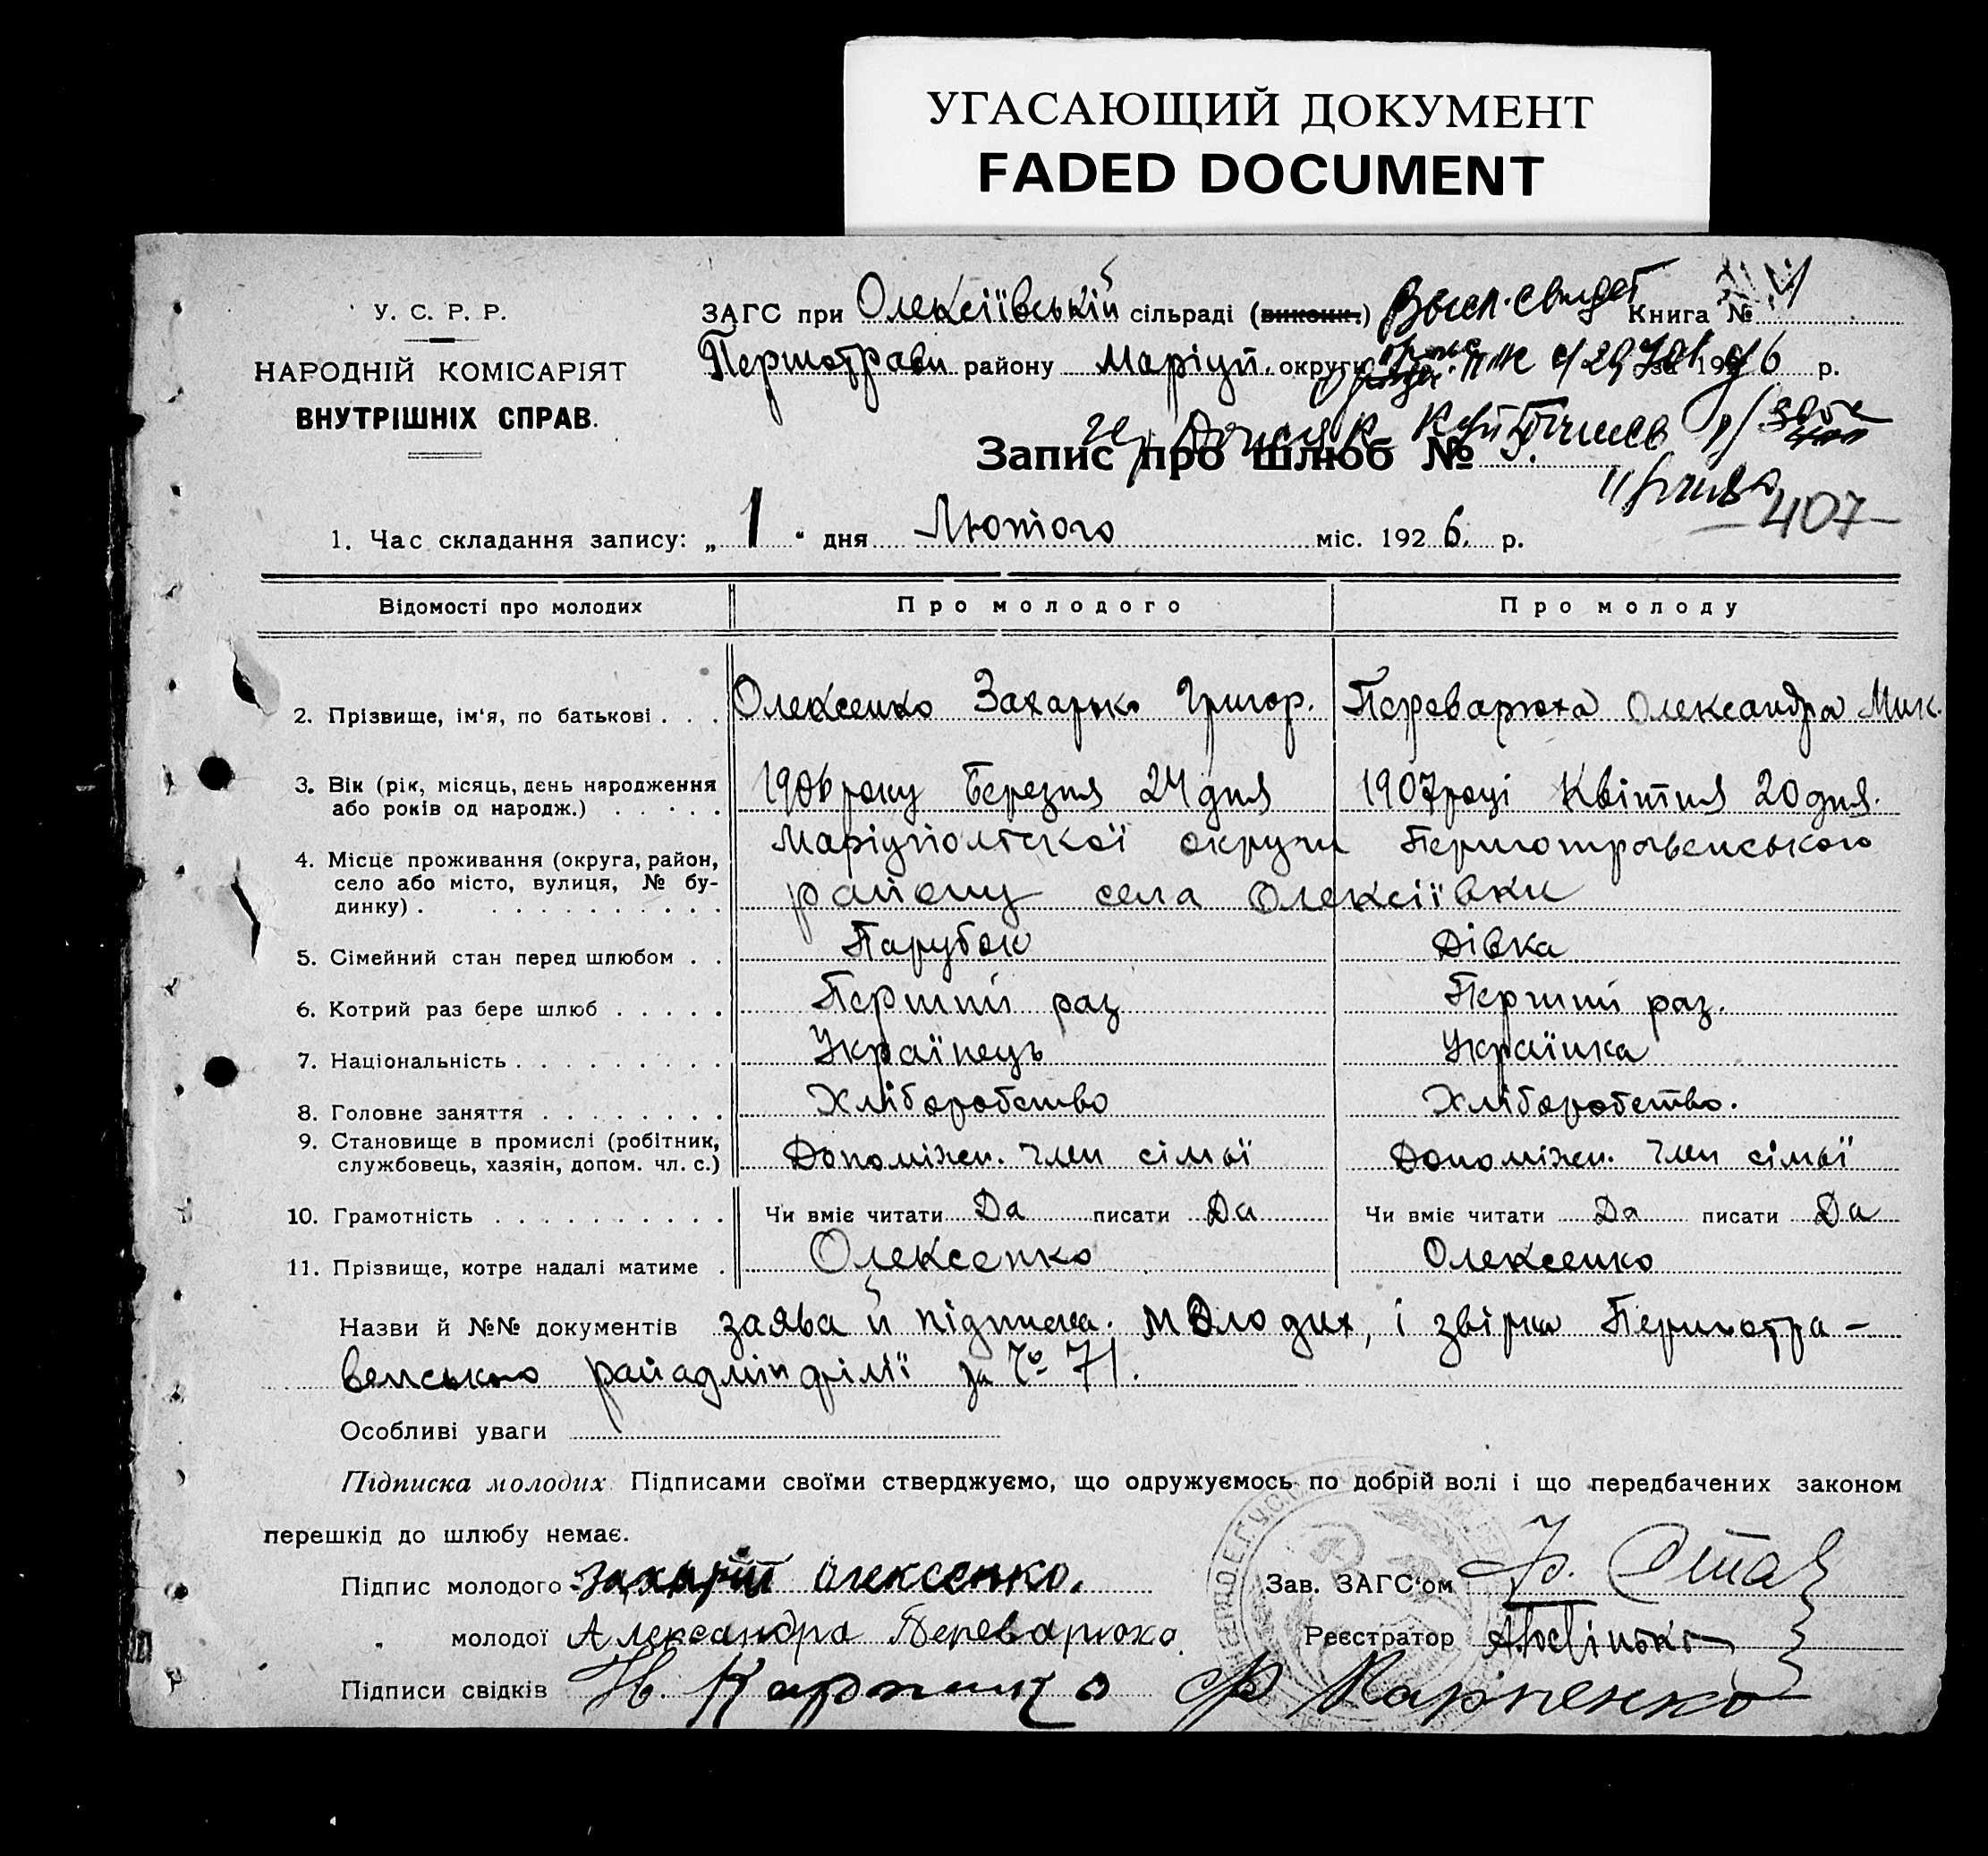 УГАСАЮЩИЙ ДОКУМЕНТ
FADED DOCUMENT
У. С. Р. Р.
НАРОДНІЙ КОМІСАРІЯТ
ВНУТРІШНІХ СПРАВ.
ЗАГС при Олексіївській сільраді (виконк.) Книга №
Першотравн району Маріуп. округи за 1926 р.
Запис про шлюб № 5.
407
1. Час складання запису: „ 1 “ дня Лютого міс. 1926. р.
Відомості про молодих Про молодого Про молоду
2. Прізвище, ім'я, по батькові . . . Олексенко Захарько Григор. Переварюха Олександра Мик.
3. Вік (рік, місяць, день народження або років од народж.) . . . . . 1906 року Березня 24 дня 1907 році Квітня 20 дня.
4. Місце проживання (округа, район, село або місто, вулиця, № будинку) . Маріупольскої округи Першотравенського
району села Олексіївки
5. Сімейний стан перед шлюбом . . Парубок Дівка
6. Котрий раз бере шлюб . . . . . Перший раз Перший раз.
7. Національність . . . . . . . . . Українець Українка
8. Головне заняття . . . . . . . . Хліборобство Хліборобство.
9. Становище в промислі (робітник, службовець, хазяін, допом. чл. с.) Допоміжн. член сімьї Допоміжн. член сімьї
10. Грамотність . . . . . . . . . . Чи вміє читати Да писати Да Чи вміє читати Да писати Да
11. Прізвище, котре надалі матиме . Олексенко Олексенко
Назви й №№ документів заява й підписка. молодих, і звірка Першотра-
венсько райадмінфілії за № 71.
Особливі уваги
Підписка молодих. Підписами своїми стверджуємо, що одружуємось по добрій волі і що передбачених законом
перешкід до шлюбу немає.
Підпис молодого Захарій Олексенко. Зав. ЗАГС'ом
„ молодої Александра Переварюха Реєстратор
Підписи свідків Н. Карпенко Ф Карпенко